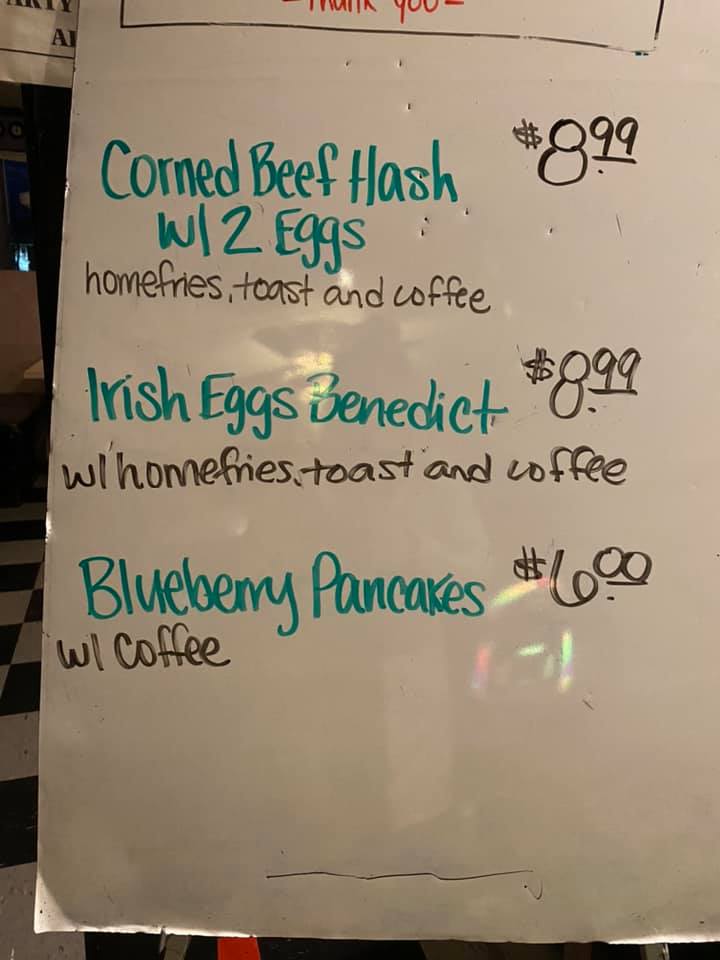 -Thank you-
Corned Beef Hash $8.99
w/ 2 Eggs
homefries, toast and coffee
Irish Eggs Benedict $8.99
w/ homefries, toast and coffee
Blueberry Pancakes $6.00
w/ Coffee